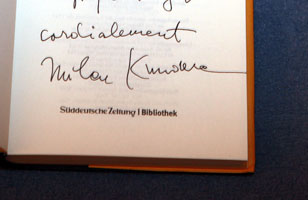 cordialement
Milan Kundera
Süddeutsche Zeitung | Bibliothek